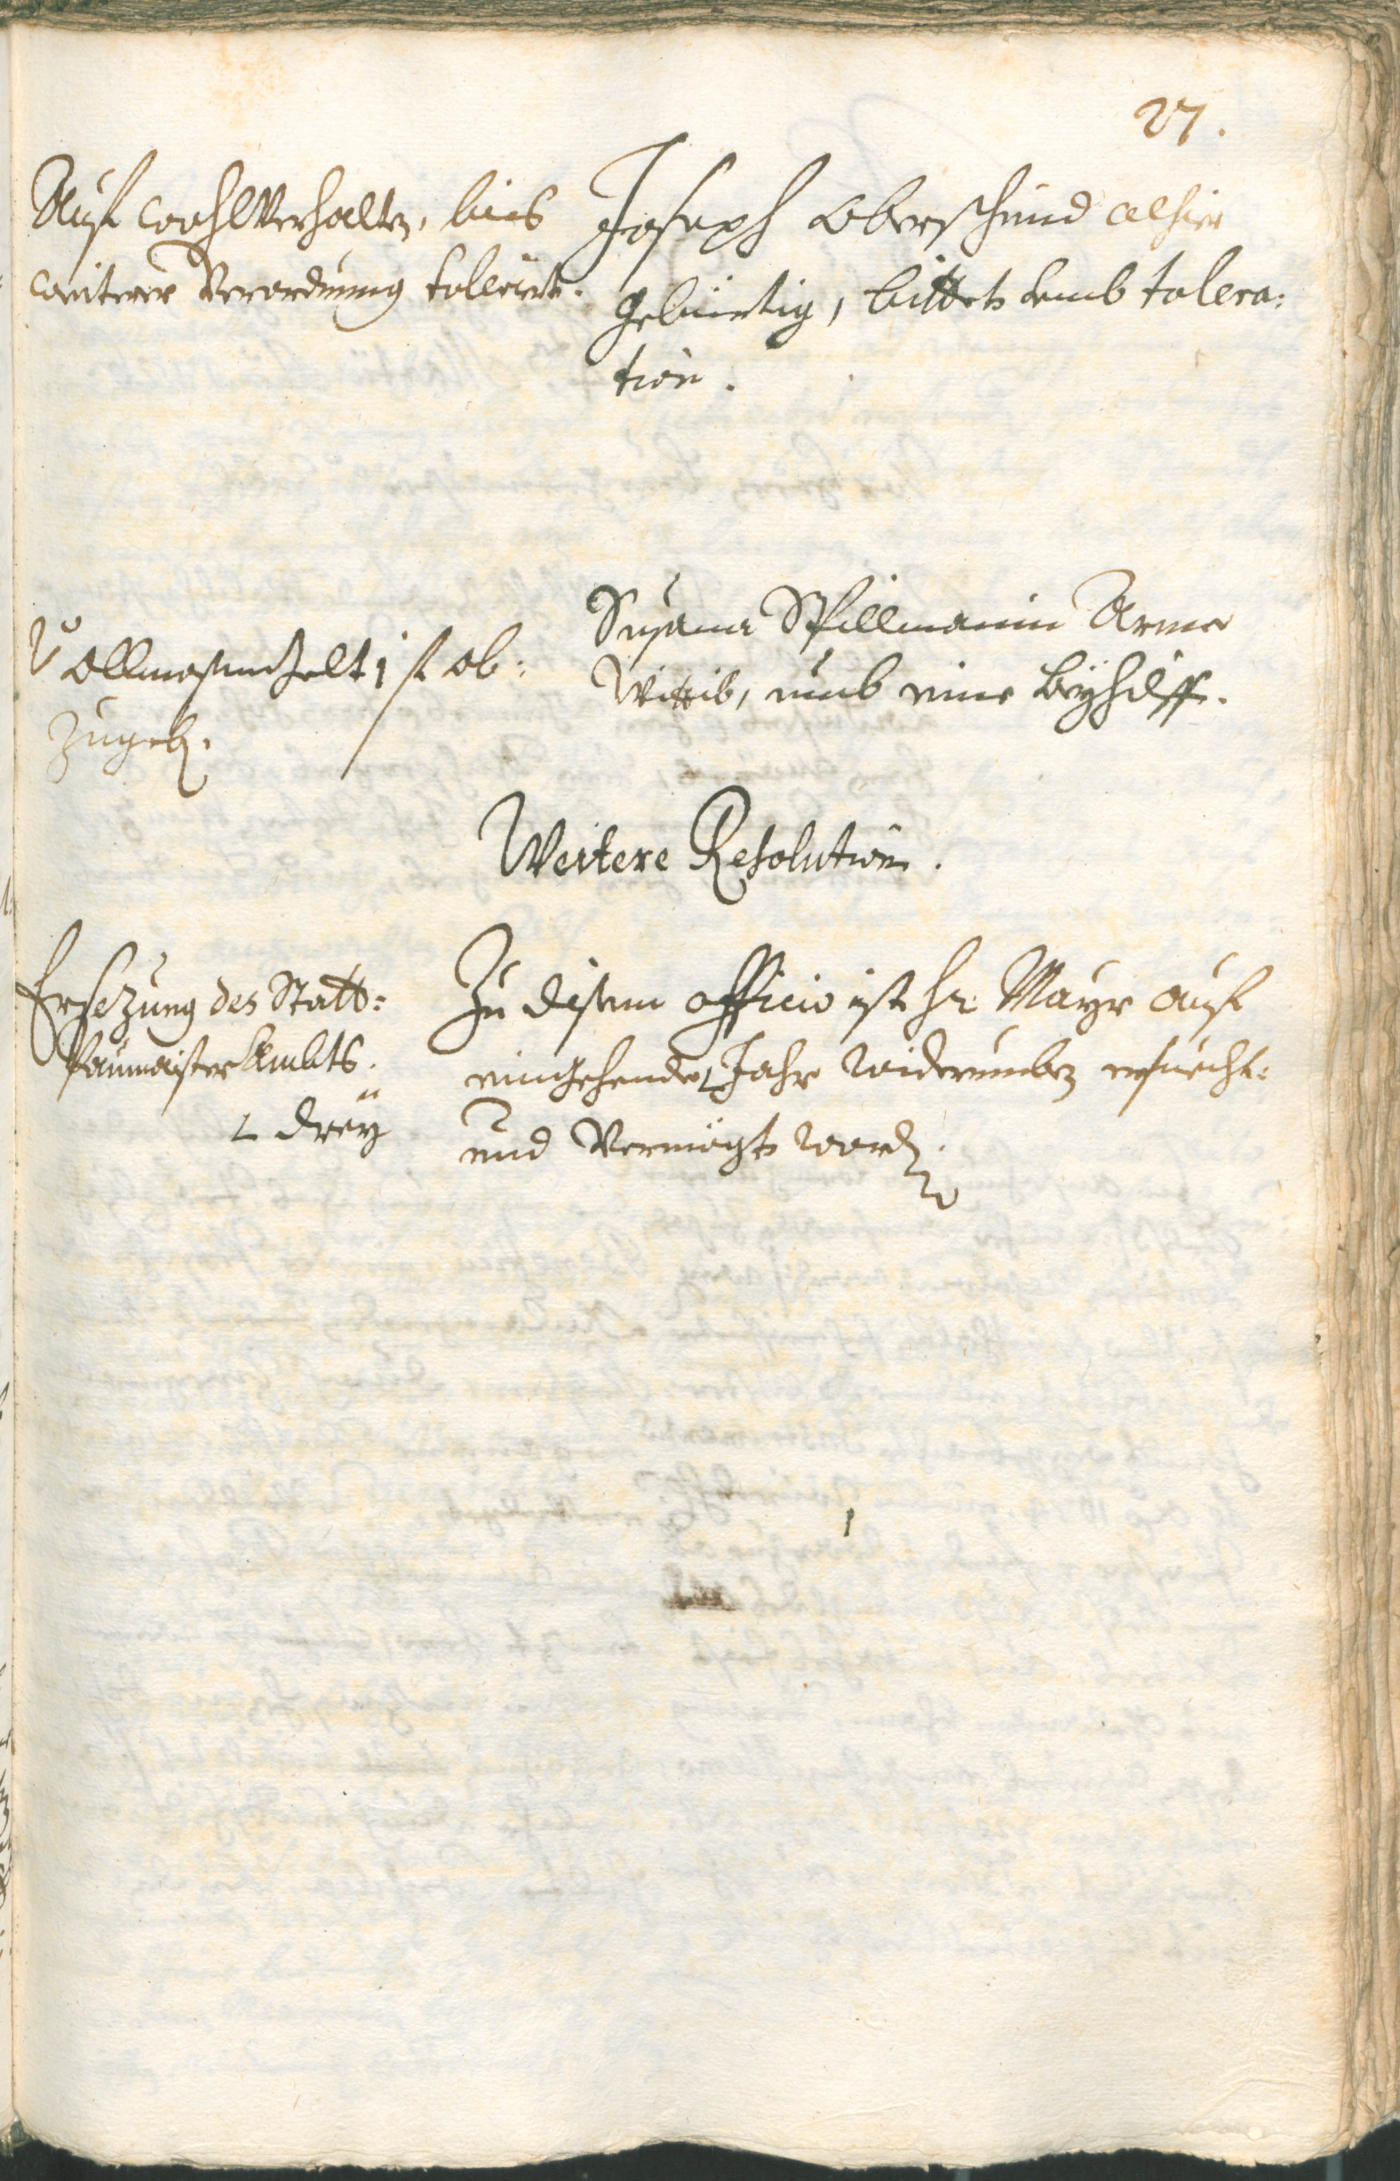 27.
Auf wohlVerhalten, bies
weiterer Verordnung tollerirt.
Joseph Oberschmid alhier
gebürtig, bittet umb tolera:
tion.
Allmosengelt 1 fl ab:
zugeb.
Susana Stillmanin Arme
Wittib, umb eine Beyhilff.
Weitere Resolution.
Ersezung des Statt:
Paumaister Ambts.
drey
Zu disem officio ist hr: Mayr auf
eingehende Jahr widerumben ersuecht:
und Vermögt word.